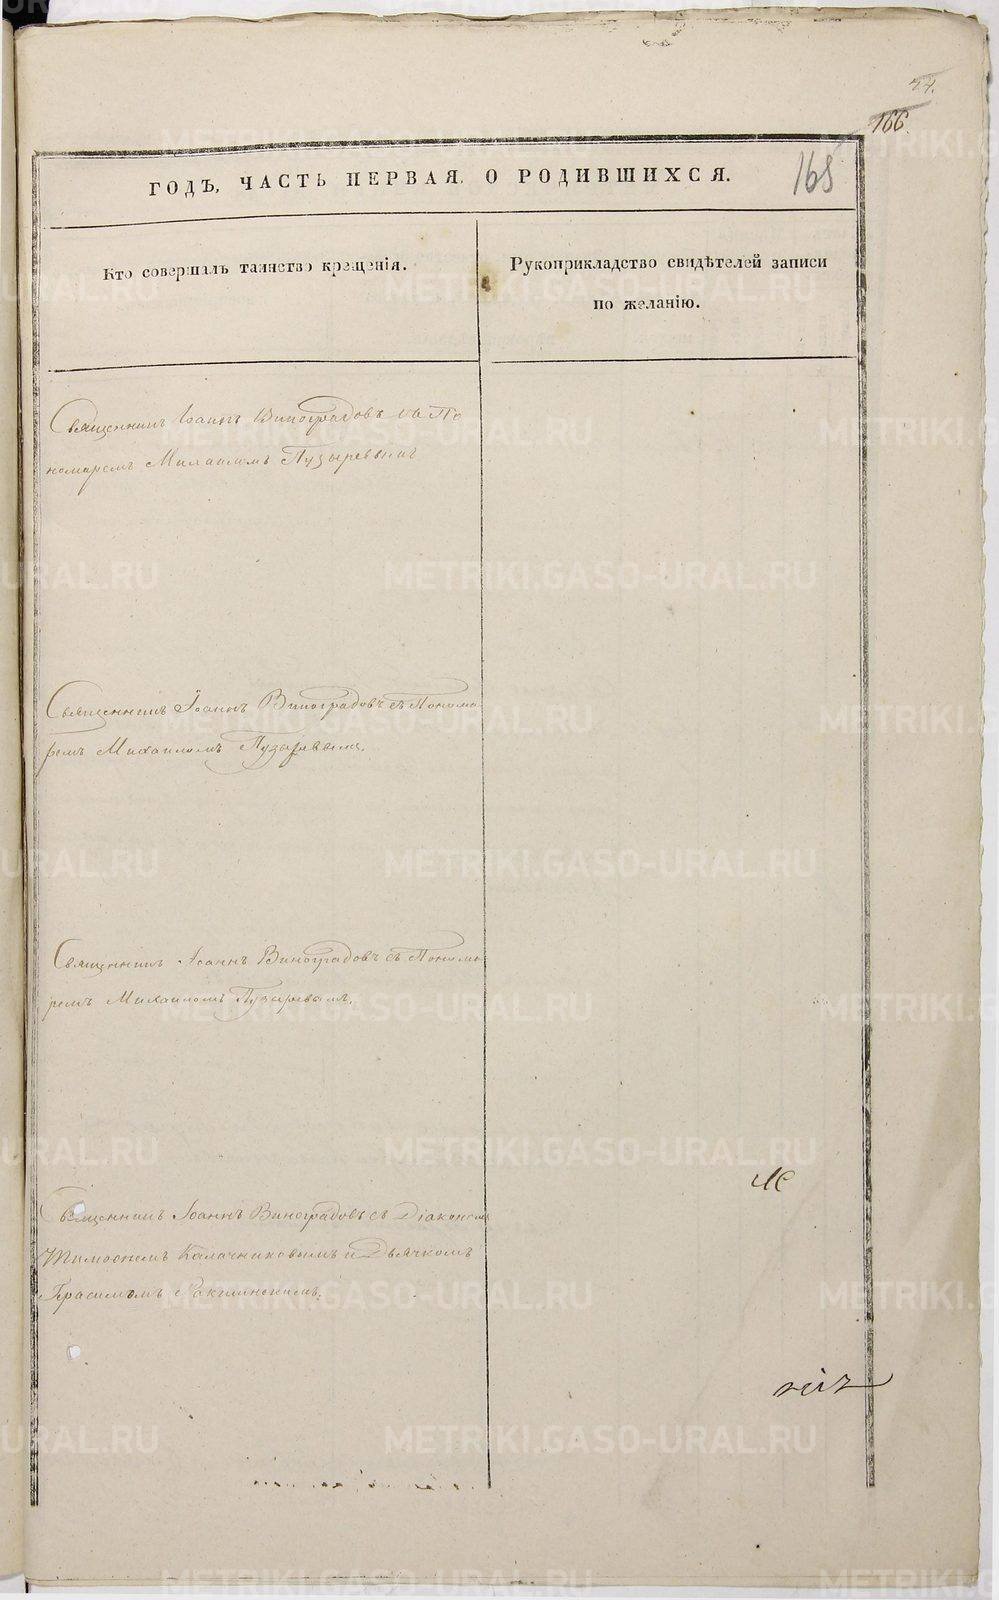 44.
166.
165
ГОДЪ, ЧАСТЬ ПЕРВАЯ, О РОДИВШИХСЯ.
Кто совершалъ таинство крещенія.
Рукоприкладство свидѣтелей записи
по желанію.
Священникъ Іоаннъ Виноградовъ съ По
номаремъ Михаиломъ Пузыревымъ
Священникъ Іоаннъ Виноградовъ съ Понома
ремъ Михаиломъ Пузыревымъ.
Священникъ Іоаннъ Виноградовъ съ Понома
ремъ Михаиломъ Пузыревымъ.
Священникъ Іоаннъ Виноградовъ съ Діакономъ
Калачниковымъ и Дьячкомъ
METRIKI.GASO-URAL.RU